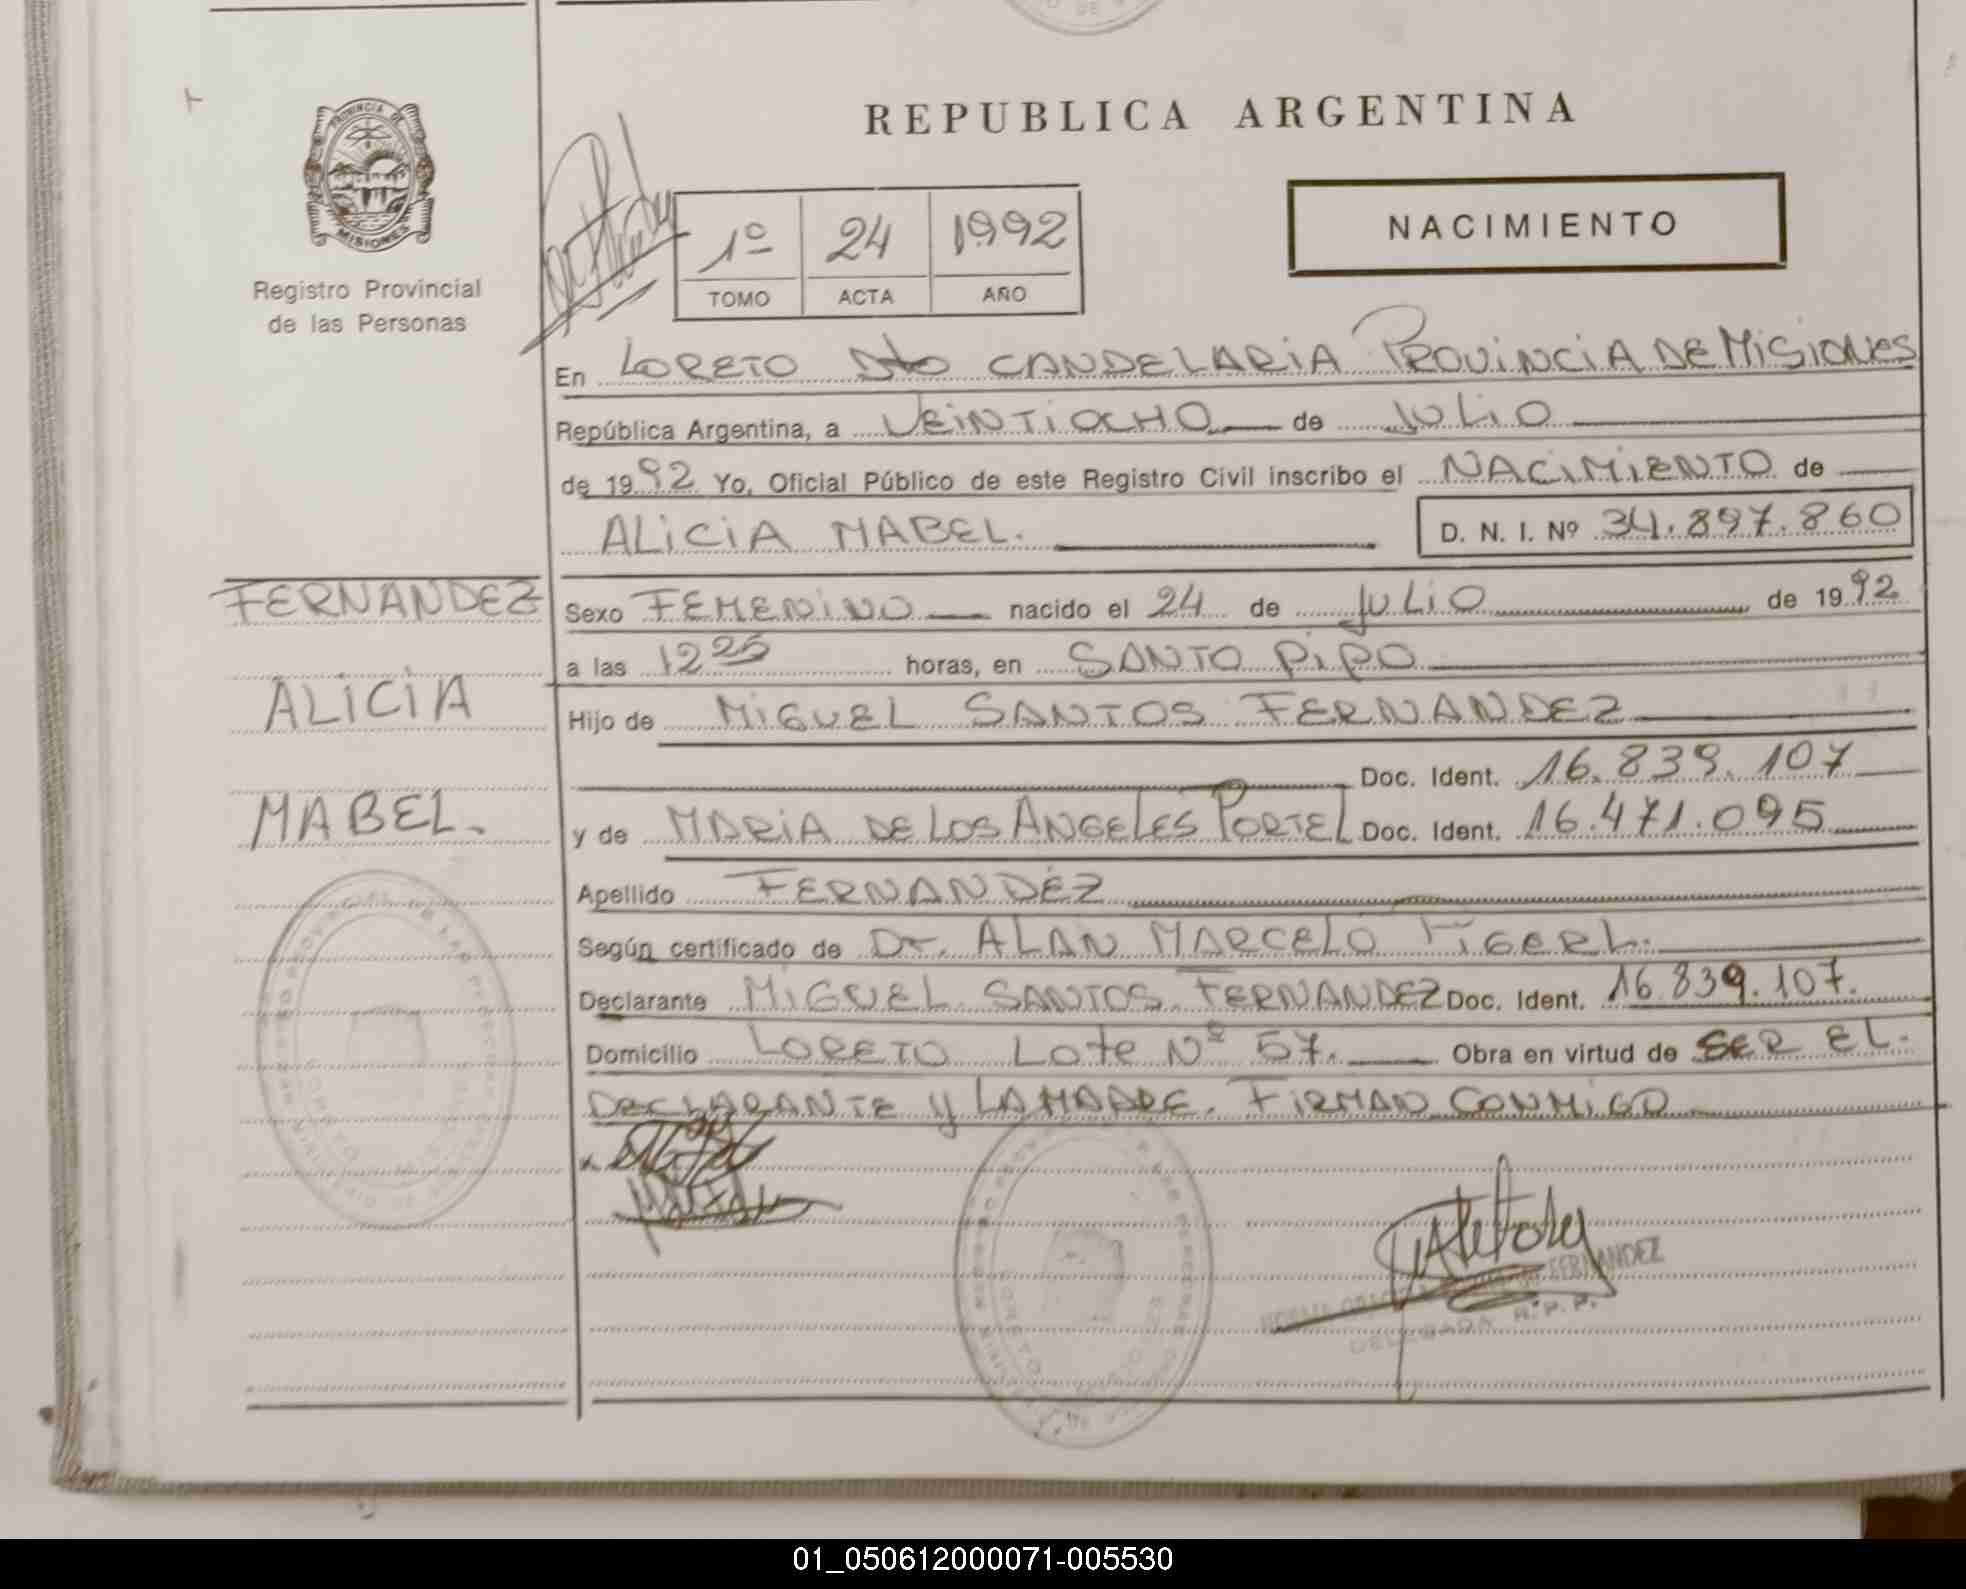 PROVINCIA DE
MISIONES
Registro Provincial
de las Personas
REPUBLICA ARGENTINA
1º 24 1992
TOMO ACTA AÑO
NACIMIENTO
En LORETO Dto CANDELARIA PROVINCIA DE MISIONES
República Argentina, a VEINTIOCHO de JULIO
de 1992 Yo, Oficial Público de este Registro Civil inscribo el NACIMIENTO de
ALICIA MABEL. D. N. I. Nº 34.897.860
FERNANDEZ
ALICIA
MABEL.
Sexo FEMENINO nacido el 24 de JULIO de 1992
a las 12 25 horas, en SANTO PIPO
Hijo de MIGUEL SANTOS FERNANDEZ
Doc. Ident. 16.839.107
y de MARIA DE LOS ANGELES PORTEL Doc. Ident. 16.471.095
Apellido FERNANDEZ
Según certificado de Dr. ALAN MARCELO FIGERL.
Declarante MIGUEL SANTOS FERNANDEZ Doc. Ident. 16.839.107.
Domicilio LORETO Lote Nº 57. Obra en virtud de SER EL.
DECLARANTE y LA MADRE. FIRMAN CONMIGO
FERNANDEZ
DELEGADA R.P.P.
01_050612000071-005530